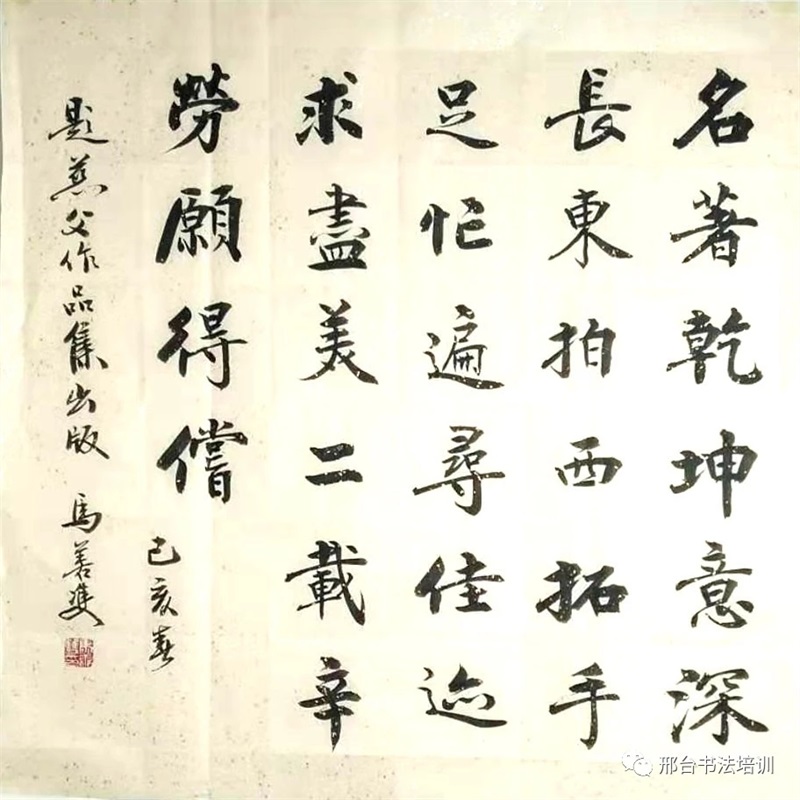 名著乾坤意深
長東拍西拓手
足忙遍尋佳迹
求盡美二載辛
勞願得償
己亥春
題慈父作品集出版 馬善雙
邢台书法培训